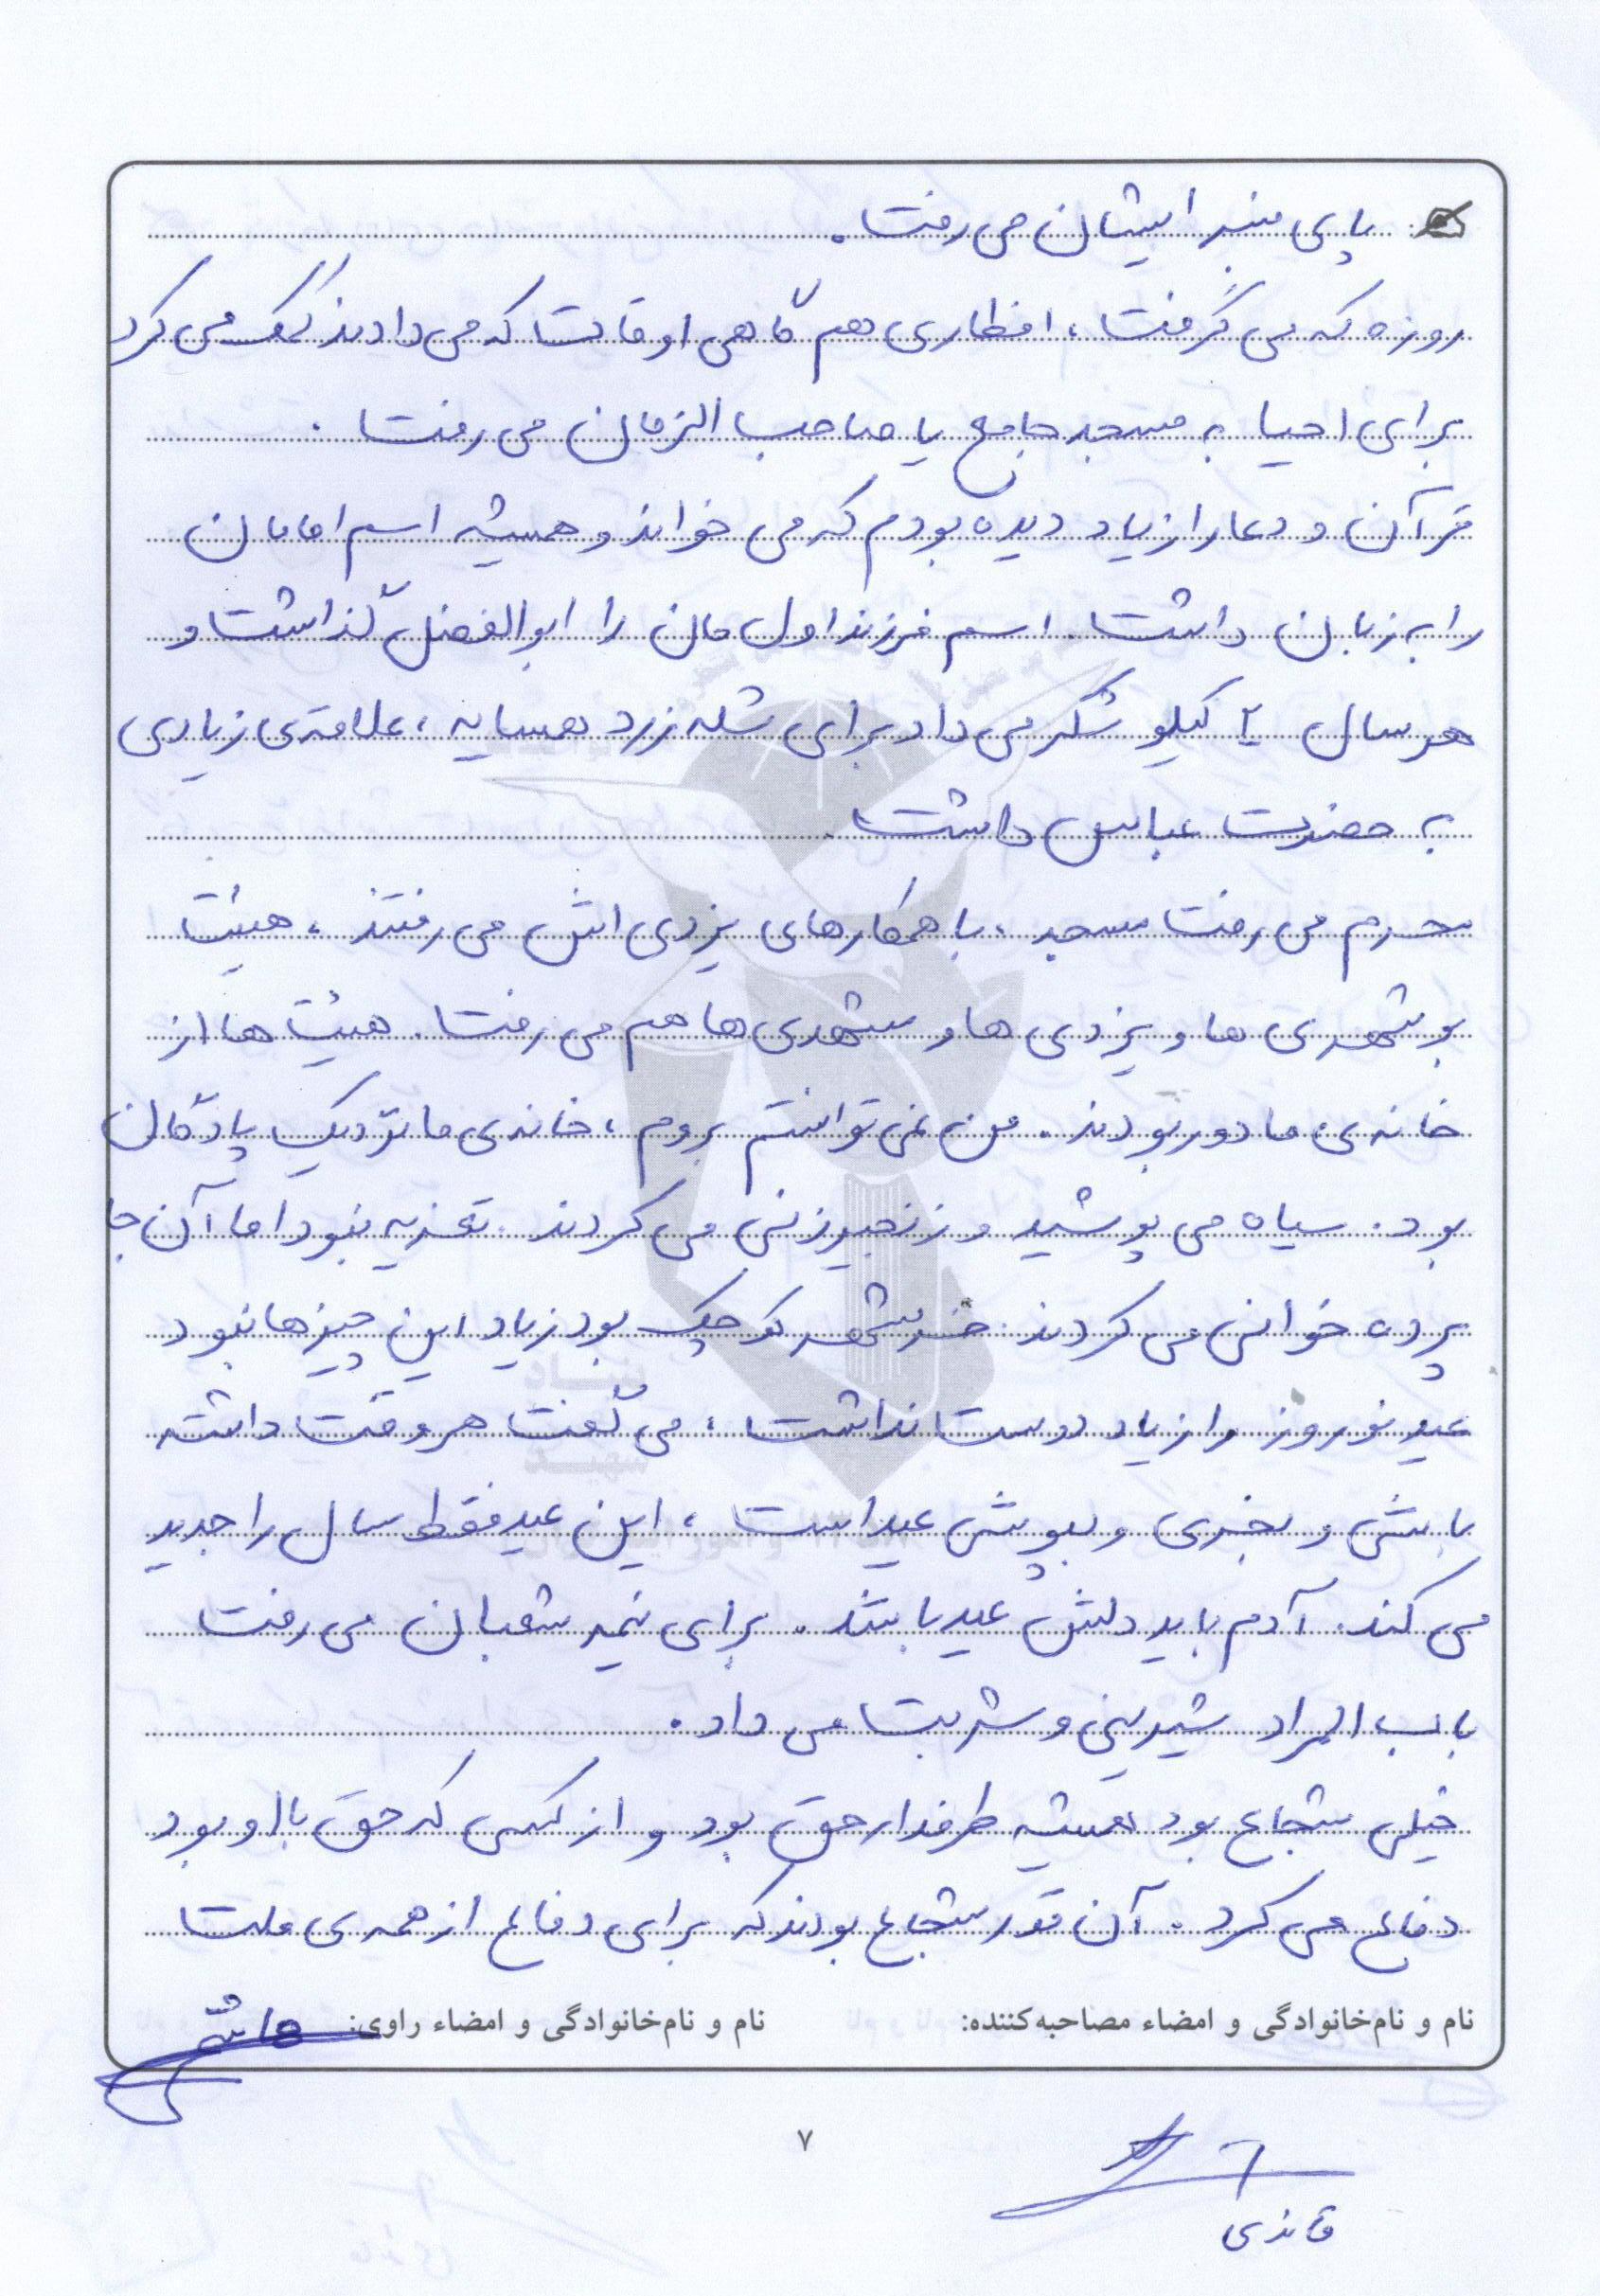 پای منبر ایشان می رفت.
روزه که می گرفت، افطاری هم گاهی اوقات که می دادند کمک می کرد
برای احیا به مسجد جامع یا صاحب الزمان می رفت.
قرآن و دعا را زیاد دیده بودم که می خواند و همیشه اسم امامان
را به زبان داشت. اسم فرزند اول مان را ابوالفضل گذاشت و
هر سال ۲ کیلو شکر می داد برای شله زرد همسایه، علاقه ی زیادی
به حضرت عباس داشت.
محرم می رفت مسجد، با همکارهای یزدی اش می رفتند، هیئت
بوشهری ها و یزدی ها و مشهدی ها هم می رفت. هیئت ها از
خانه ی ما دور بودند. من نمی توانستم بروم، خانه ی ما نزدیک پادگان
بود. سیاه می پوشید و زنجیرزنی می کردند. تعزیه نبود اما آن جا
پرده خوانی می کردند. خرمشهر کوچک بود زیاد این چیزها نبود
عید نوروز را زیاد دوست نداشت، می گفت هر وقت داشته
باشی و بخری و بپوشی عید است، این عید فقط سال را جدید
می کند. آدم باید دلش عید باشد. برای نیمه شعبان می رفت
باب المراد شیرینی و شربت می داد.
خیلی شجاع بود همیشه طرفدار حق بود و از کسی که حق با او بود
دفاع می کرد. آن قدر شجاع بودند که برای دفاع از همه ی ملت
نام و نام‌خانوادگی و امضاء مصاحبه‌کننده: نام و نام‌خانوادگی و امضاء راوی:
۷